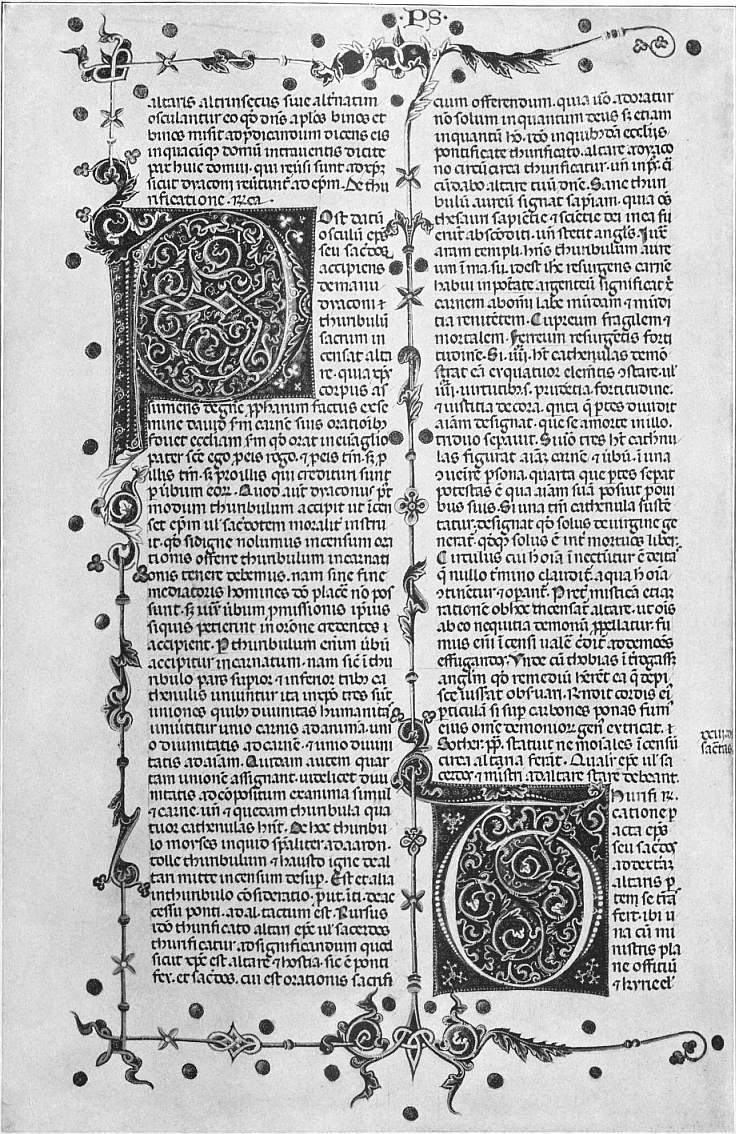 ·PS·
altaris altrinsecus siue alt̃natim
osculantur eo qđ dñs aplos binos et
binos misit ad p̃dicandum dicens eis
in quacũq; domũ intraueritis dicite
pax huic domui. qui reũsi sunt ad xp̃ʒ
sicut draconi reũtunt᷑ ad ep̃m. De thu
rificatione.
Post datũ
osculũ ep̃s
seu sac̃dos
accipiens
de manu
draconi
thuribulũ
sacrum in
censat alta
re. quia xp̃c
corpus as
sumens de gñe p̃phanum factus ex se
mine dauid sm̃ carnẽ suis orationibʒ
fouet eccliam sm̃ qđ orat in euãglio
pater scẽ ego p eis rogo. ⁊ ñ p eis tm̃. sʒ p
illis tm̃. sʒ ⁊ pro illis qui credituri sunt
p ũbum eorʒ. Quod aut̃ draconus p̃t
modum thuribulum accipit ut ĩcen
set ep̃m ul̃ sac̃dotem moralit᷑ instru
it. qđ si digne uolumus incensum ora
tionis offerre thuribulum incarnati
onis tenere debemus. nam sine fine
mediatoris homines dõ placẽ nõ pos
sunt. sʒ iux̃ ũbum p̃missionis ipsius
si quis petierint in orõne credentes
accipient. P thuribulum enim ũbũ
accipitur incarnatum. nam sic̃ ĩ thu
ribulo pars sup̃ior ⁊ inferior tribʒ ca
thenulis uniuntur ita in xp̃o tres sũt
uniones quibʒ diuinitas humanitati
unit᷑ unio carnis ad animã. uni
o diuinitatis ad carnẽ ⁊ unio diuini
tatis ad aĩam. Quidam autem quar
tam unionẽ assignant. uidelicet diui
nitatis ad cõpositum ex anima simul
⁊ carne. un̄ ⁊ quedam thuribula qua
tuor cathenulas hñt. De hoc thuribu
lo moyses inquid sp̃aliter ad aaron.
tolle thuribulum ⁊ hausto igne de al
tari mitte incensum desup̃. Est et alia
in thuribulo cõsideratio p ut ĩ ti. de ac
cessu ponti. ad al. tactum est. Rursus
iõo thurificato altari ep̃e ul̃ sacerdos
thurificatur. ad significandum quod
sicut xp̃c est altarẽ ⁊ hostia. sic ẽ ponti
fex. et sac̃dos. cui est orationis sacrifi
cium offerendum. quia uõ adoratur
nõ solum in quantum deus sʒ etiam
in quantũ hõ. iõo in quibʒdã eccl̃iis
pontificate thurificato. altare a diaco
no circũ circa thurificatur. un̄ in ps. cĩ
cũdabo altare tuũ dñe. Sane thuri
bulũ aureũ signat sapĩam. quia oẽs
thesauri sapientie ⁊ sciẽtie dei in ea fu
erũt absconditi. un̄ stetit angl̃s iux̃
aram templi. hñs thuribulum aure
um ĩ ma. su. id est ih̃c resurgens carnẽ
habuit in põtate argenteũ significat
carnem ab oĩ labe mũdam ⁊ mũdi
tia renitẽtem. Cupreum fragilem ⁊
mortalem. Ferreum resurgẽtis forti
tudinẽ. Si. iiii. hʒ cathenulas demõ
strat eã ex quatuor elemẽtis ɔstare. ul̃
iiii. uirtutibʒ. prudẽtia. fortitudine.
⁊ iustitia decora. q̃nta q̃ p̃tes diuidit
aĩam designat. que se a morte in illo.
triduo separauit. Si uõo tres hʒ cathẽu
las figurat aĩaʒ carnẽ ⁊ ũbũ. ĩ una
ɔuenire p̃sona. quarta que p̃tes sepat
potestas ẽ qua aĩam suã posuit p oui
bus suis. Si una tm̃ cathenula sustẽ
tatur. designat qđ solus de uirgine ge
nerat᷑. qđq; solus ẽ int̃ mortuos liber.
Circulus cui h̾ oĩa ĩnectuntur ẽ deitas
q̃ nullo t̃mino claudit᷑. a qua h̾ oĩa
ɔtinentur ⁊ operant᷑. Preter misticã etiaʒ
rationẽ ob hoc thurificat᷑ altare. ut oĩs
ab eo nequitia demonũ ppellatur. fu
mus eni ĩcensi ualẽ cdit᷑ ad demões
effugandos. Unde cũ thobias ĩ trogasʒ
angl̃m qđ remediũ hẽret ea q̃ de pi
sce iussat obsuari. Rñdit cordis ei
pticulã si sup̃ carbones ponas fumꝰ
eius omẽ demonioʒ genꝰ extricat.
Sother. pp̃. statuit ne moniales ĩcensũ
circa altaria ferãt. Qualit᷑ ep̃e ul̃ sa
cerdos ⁊ ministri ad altare stare debeant.
Thurifi
catione p
acta ep̃s
seu sac̃dos
ad dextãʒ
altaris p
tem se trãs
fert. ibi u
na cũ mi
nistris pla
ne offitiũ
⁊ kyriel